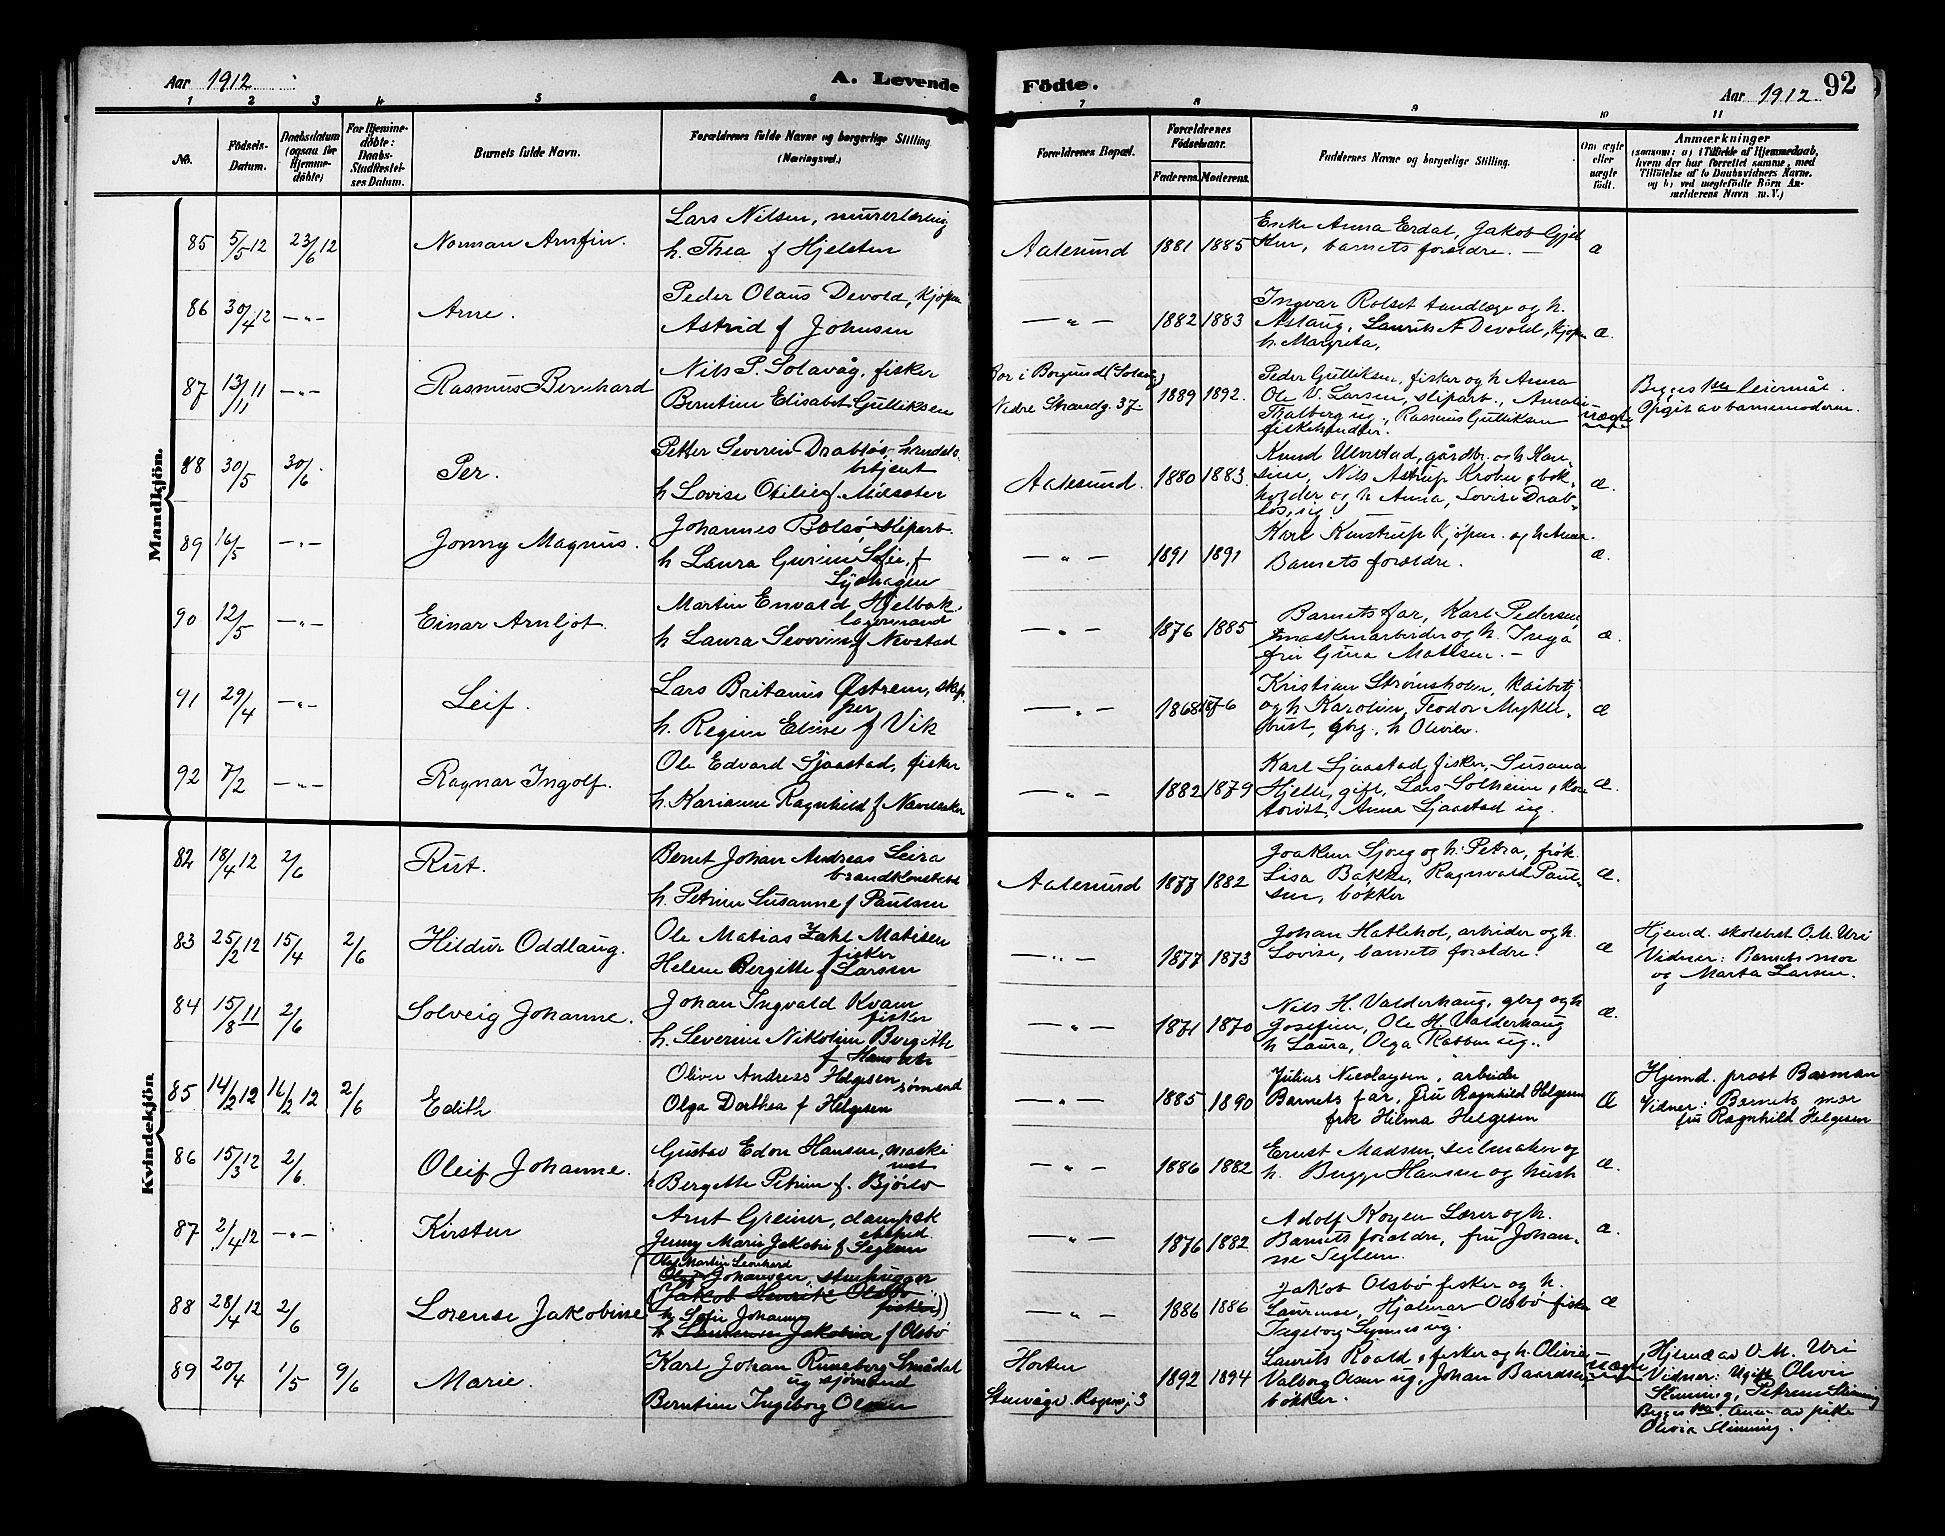 Aar 1912. A. Levende Födte. Aar 1912. 92
1 2 3 4 5 6 7 8 9 10 11
No. Födsels-Datum. Daabsdatum (ogsaa for Hjemmedöbte) For Hjemmedöbte: Daabs-Stadfæstelses Datum. Barnets fulde Navn. Forældrenes fulde Navne og borgerlige Stilling (Næringsvei.) Forældrenes Bopæl. Forældrenes Födselsaar. Faderens. Moderens. Faddernes Navne og borgerlige Stilling. Om ægte eller uægte födt. Anmærkninger (saasom: a) i Tilfælde af Hjemmedaab, hvem der har forrettet samme, med Tilföielse af to Daabsvidners Navne. og b) ved uægtefödte Börn Anmelderens Navn m. V.)
Mandkjön.
85 5/5 12 23/6 12 Norman Arnfin. Lars Nilsen, murerlærling
h. Thea f Hjelsten Aalesund 1881 1885 Enke Anna Erdal, Jakob Gjel
barnets foreldre. — æ
86 30/4 12 —„— Arne. Peder Olaus Devold, kjøpm
Astrid f Johnsen —„— 1882 1883 Ingvar Rolset tandlæge og h.
Aslaug, Laurits A Devold, kjøpm
h. Margreta, æ.
87 13/11 11 —„— Rasmus Bernhard Nils P. Solavåg, fisker
Berntine Elisabet Gulliksen Bor i Borgund (Solavåg)
Nedre Strandg. 37 1889 1892. Peder Gulliksen, fisker og h Anna
Ole V. Larsen, sliparb., Amalie
Thalberg ug., Rasmus Gulliksen
fiskehandler. uægte Begges 1ste leiermål.
Opgit av barnemoderen.
88 30/5 30/6. Per. Petter Severin Drabløs, handels
betjent
h Lovise Otilie f Midsæter Aalesund. 1880 1883. Knud Ulvestad, gårdbr. og h Kar
sine, Nils Astrup Krohn, bok
holder og h Anna, Lovise Drab
løs, ug. æ.
89 16/5 —„— Jonny Magnus. Johannes Bolsø sliparb.
h Laura Gurine Sofie f
—„— 1891 1891 Karl Kinstrup Kjøpm. og h Anna.
Barnets foreldre. æ.
90 12/5 —„— Einar Arnljot. Martin Envald Hjelbak.
lagermand
h Laura Severine f Nerstad —„— 1876 1885 Barnets far, Karl Pedersen
maskinarbeider og h. Inga
fru Gina Matisen. — æ.
91 29/4 —„— Leif. Lars Britanus Østrem, skip
per
h. Regine Elise f Vik —„— 1868 1876 Kristian Strømsholm, Kaibetj
og h Karoline, Teodor Mykle
bust, gbr., h Olivia. æ
92 7/2 —„— Ragnar Ingolf. Ole Edvard Sjaastad, fisker
h. Karianne Ragnhild f —„— 1882 1879 Karl Sjaastad, fisker, Susana
Hjelle, gift, Lars Solheim, kon
torist, Anna Sjaastad ug. æ.
Kvindekjön
82 18/4 12 2/6 Rut. Bernt Johan Andreas Leira
brandkonstabel
h. Petrine Susanne f Paulsen Aalesund 1877 1882 Joakim Sjong og h. Petra, frøk.
Lisa Bakke, Ragnvald Paul
sen, bøkker æ.
83 25/2 12 15/4 2/6 Hildur Oddlaug. Ole Matias Zahl Matisen
fisker
Helene Bergitte f Larsen —„— 1877 1873 Johan Hatlehol, arbeider og h.
Lovise, barnets foreldre. æ Hjemd. skolebest O. M. Uri
Vidner: Barnets mor
og Marta Larsen.
84 15/8 11 2/6 Solveig Johanne. Johan Ingvald Kvam
fisker
h. Severine Nikoline Bergitte
—„— 1871 1870 Nils H. Valderhaug, gbrg og h
Josefine, Ole H. Valderhaug
h Laura, Olga Rabben ug. æ.
85 14/2 12 16/2 12 2/6 Edith Oliver Andreas Helgesen
sømand
Olga Dorthea f Helgesen —„— 1885 1890 Julius Nicolaysen, arbeider
Barnets far, fru Ragnhild Helgesen
frk Hilma Helgesen æ Hjemd. prost Barman
Vidner: Barnets mor
fru Ragnhild Helgesen
86 15/3 12 2/6. Oleif Johanne. Gustav Edon Hansen, maski
nist
h Bergette Petrine f. Bjørlo —„— 1886 1882 Ernst Madsen, seilmaker og
h. Bugge Hansen og hust æ.
87 2/4 12 —„— Kirsten Arnt Greiner, dampsk
eksped.
Jenny Marie Jakobie f Seglem —„— 1876 1882 Adolf Koyen Lærer og h.
Barnets foreldre, fru Johan
ne Seglem. æ.
88 28/4 12 2/6 Lorense Jakobine Ole Martin Leonhard
Johansen, stenhugger
(Jakob Henrik Olsbø
fisker)
h Sofie Johanne
h Laurense Jakobina f Olsbø —„— 1886 1886 Jakob Olsbø fisker og h.
Laurense, Hjalmar Olsbø fisker
Ingeborg Synnes ug. æ
89 20/4 1/5 9/6 Marie. Karl Johan Runeborg Smådal
ug sjømand
Berntine Ingeborg Olsen Horten
Stenvåg. 3 1892 1894 Laurits Roald, fisker og h. Olivia
Valborg Olsen ug, Johan Baardsen,
bøkker. uægte Hjemd av O. M. Uri
Vidner: Ugift Olivia
Skinning, Petrine Slinning
Begges 1ste. Anm. av pike
Olivia Slinning.